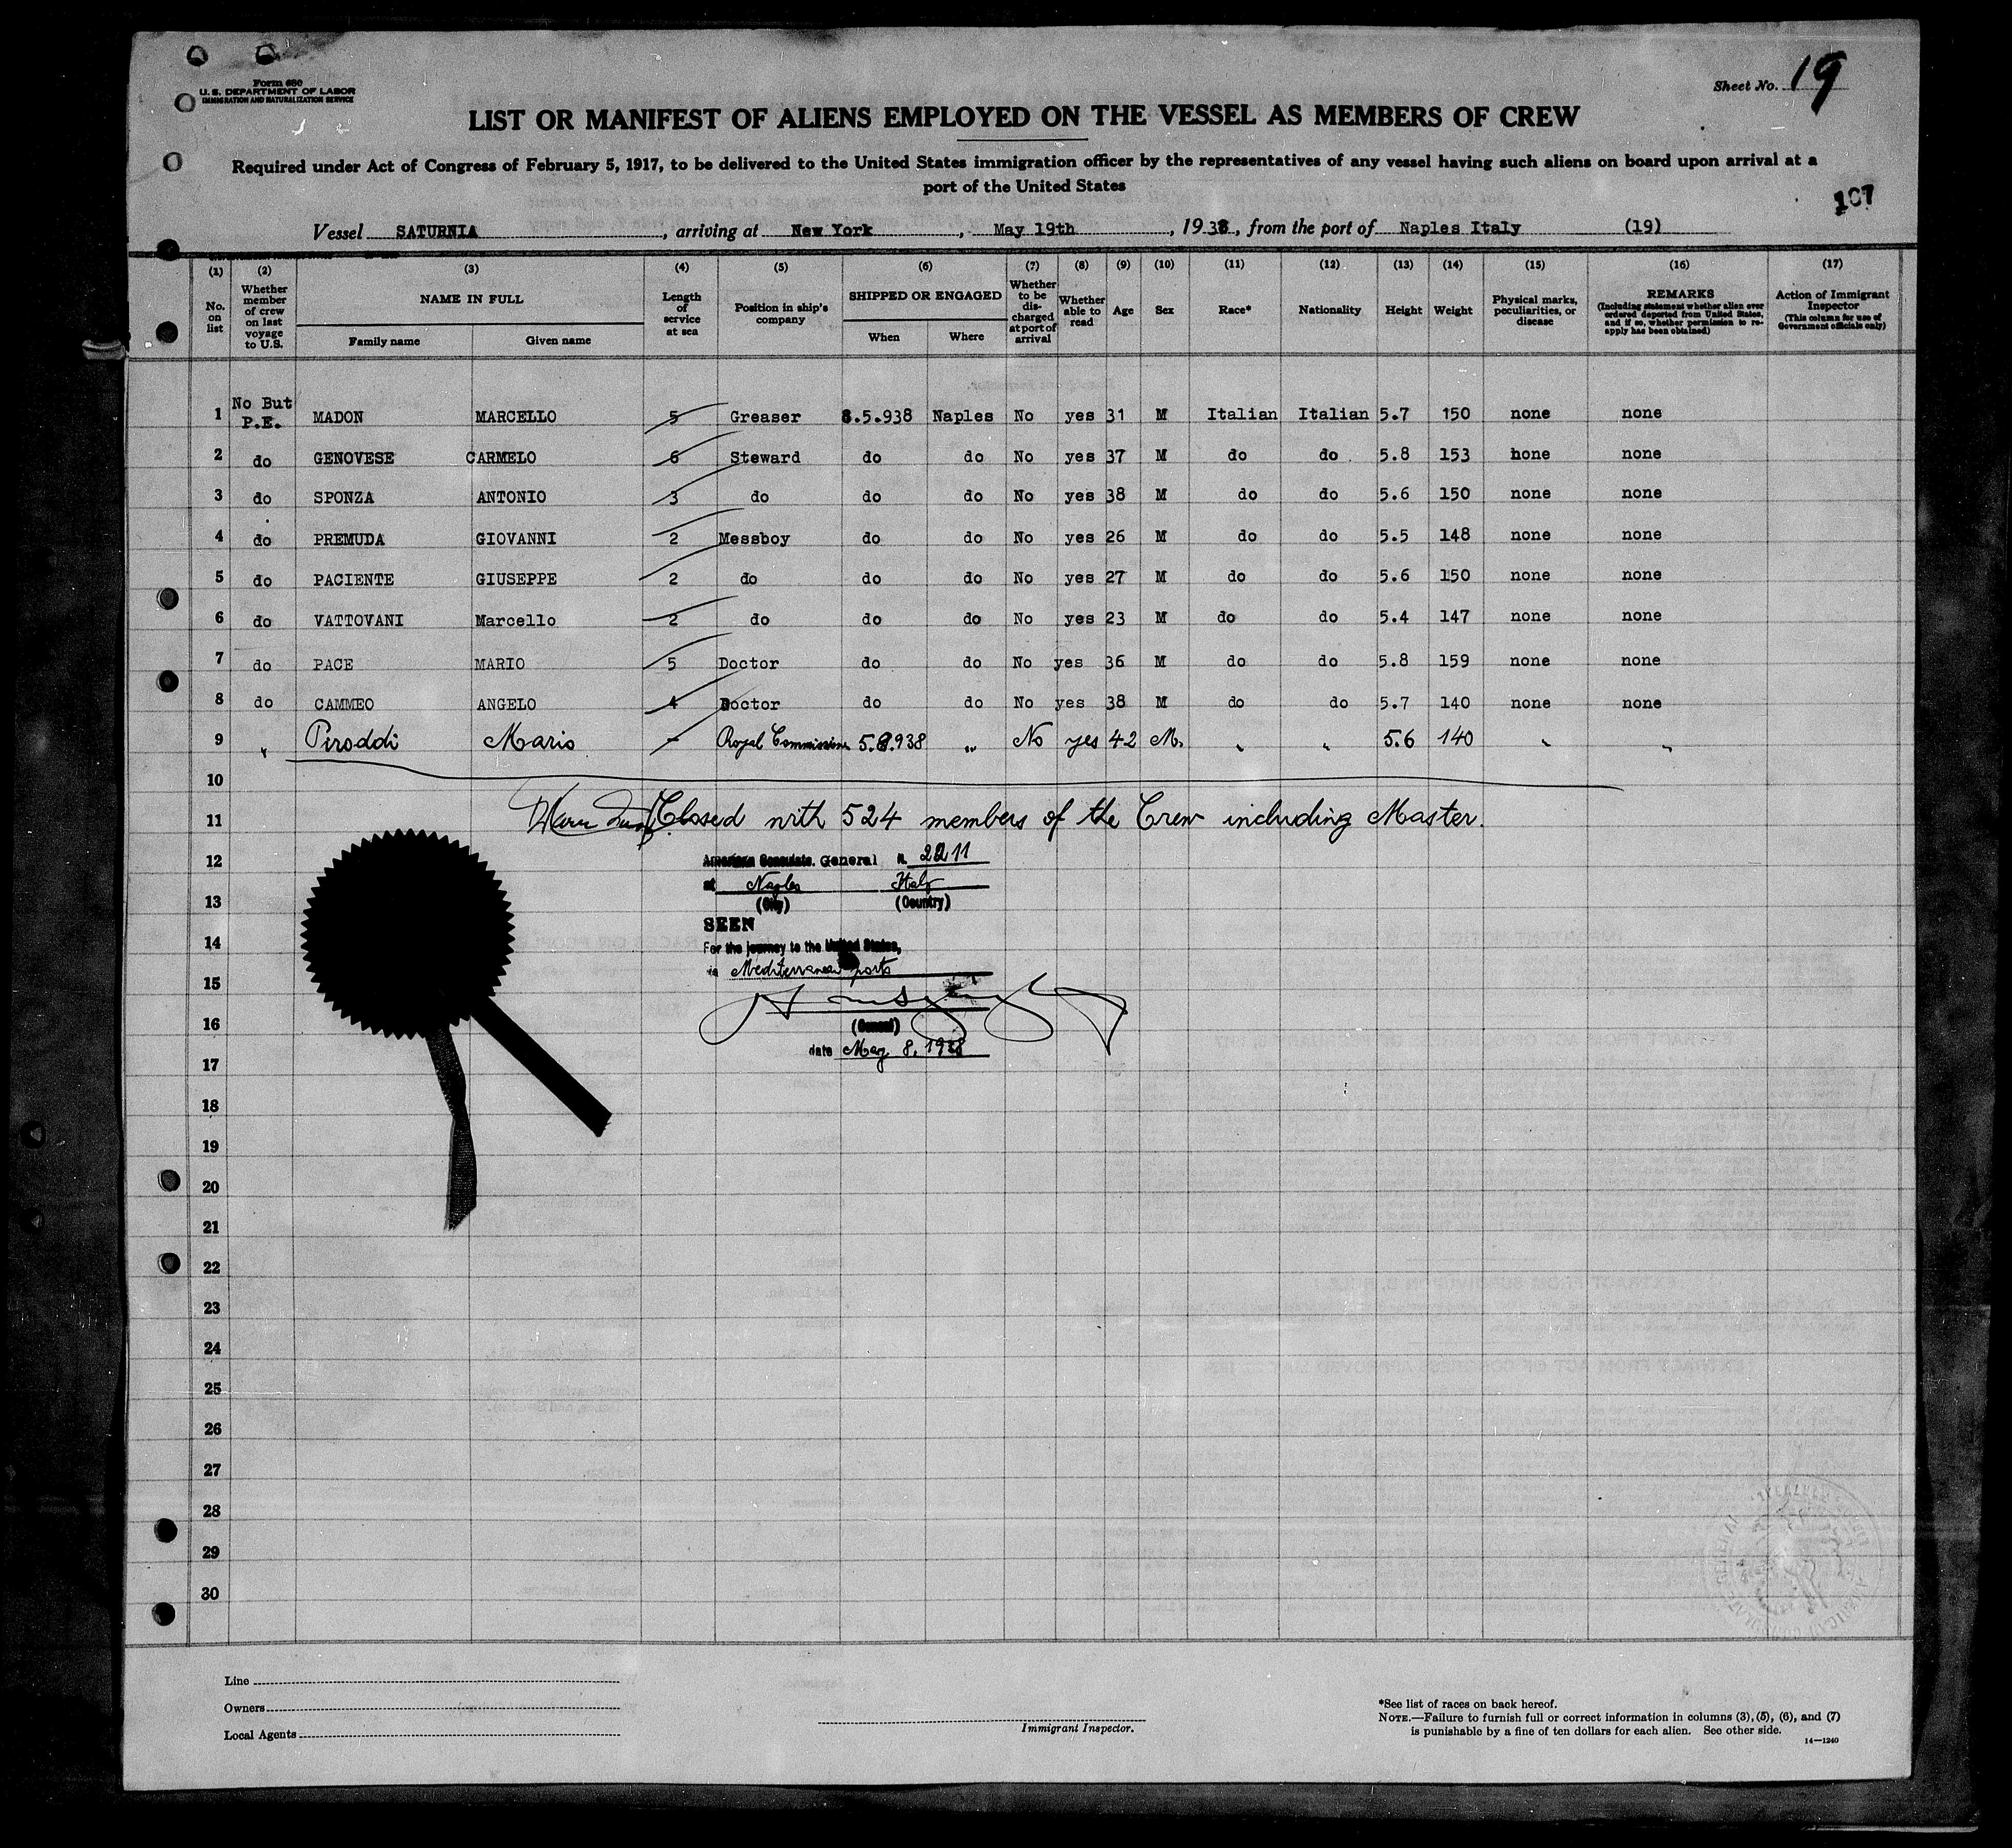 Form 680
U. S. DEPARTMENT OF LABOR
IMMIGRATION AND NATURALIZATION SERVICE
Sheet No. 19
LIST OR MANIFEST OF ALIENS EMPLOYED ON THE VESSEL AS MEMBERS OF CREW
Required under Act of Congress of February 5, 1917, to be delivered to the United States immigration officer by the representatives of any vessel having such aliens on board upon arrival at a
port of the United States
107
Vessel SATURNIA, arriving at New York, May 19th, 1938, from the port of Naples Italy (19)
(1) (2) (3) (4) (5) (6) (7) (8) (9) (10) (11) (12) (13) (14) (15) (16) (17)
No. on list
Whether member of crew on last voyage to U.S.
NAME IN FULL
Family name Given name
Length of service at sea
Position in ship's company
SHIPPED OR ENGAGED
When Where
Whether to be discharged at port of arrival
Whether able to read
Age
Sex
Race*
Nationality
Height
Weight
Physical marks, peculiarities, or disease
REMARKS
(Including statement whether alien ever ordered deported from United States, and if so, whether permission to re-apply has been obtained)
Action of Immigrant Inspector
(This column for use of Government officials only)
1 No But P.E. MADON MARCELLO 5 Greaser 8.5.938 Naples No yes 31 M Italian Italian 5.7 150 none none
2 do GENOVESE CARMELO 6 Steward do do No yes 37 M do do 5.8 153 hone none
3 do SPONZA ANTONIO 3 do do do No yes 38 M do do 5.6 150 none none
4 do PREMUDA GIOVANNI 2 Messboy do do No yes 26 M do do 5.5 148 none none
5 do PACIENTE GIUSEPPE 2 do do do No yes 27 M do do 5.6 150 none none
6 do VATTOVANI Marcello 2 do do do No yes 23 M do do 5.4 147 none none
7 do PACE MARIO 5 Doctor do do No yes 36 M do do 5.8 159 none none
8 do CAMMEO ANGELO 4 Doctor do do No yes 38 M do do 5.7 140 none none
9 " Piroddi Mario - Royal Commissione 5.8.938 " No yes 42 M. " " 5.6 140 " "
10
11 Closed with 524 members of the Crew including Master.
12 American Consulate. General N. 2211
at Naples Italy
13 (City) (Country)
SEEN
14
For the journey to the United States,
via Mediterranean ports
15
16 (Consul)
date May 8, 1938
17
18
19
20
21
22
23
24
25
26
27
28
29
30
Line
Owners
Local Agents
Immigrant Inspector.
*See list of races on back hereof.
NOTE.—Failure to furnish full or correct information in columns (3), (5), (6), and (7)
is punishable by a fine of ten dollars for each alien. See other side.
14—1240